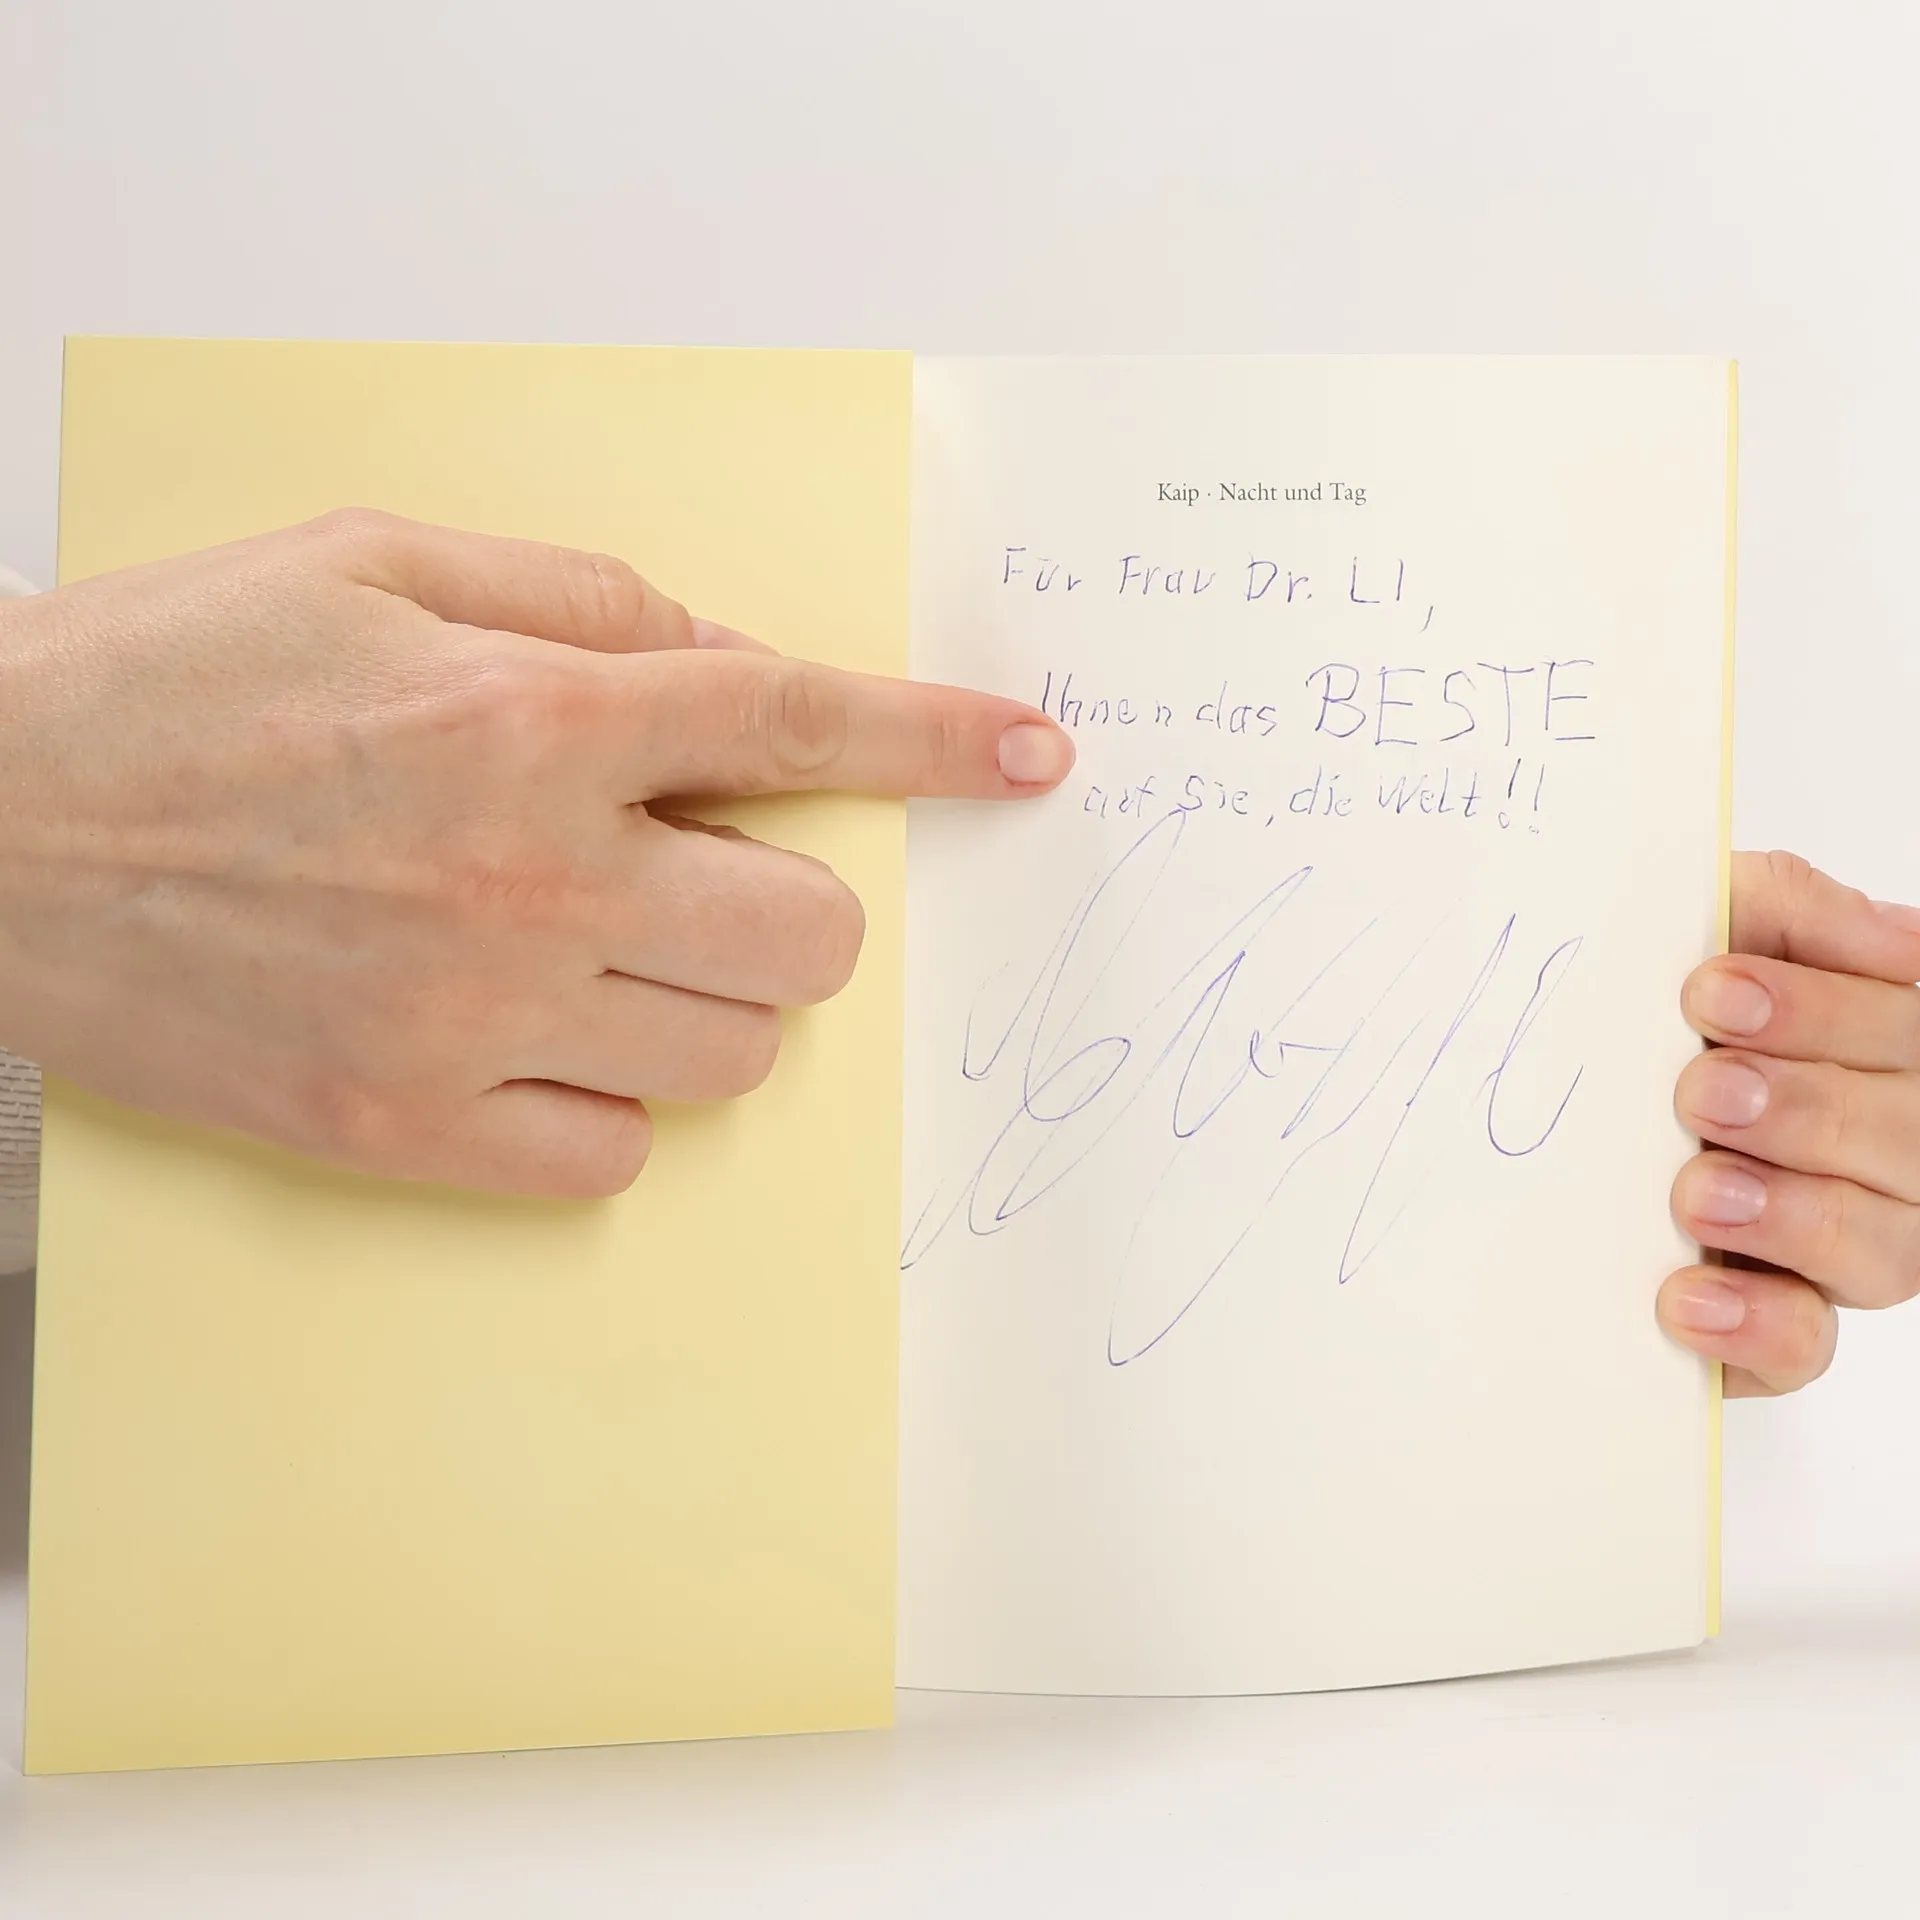 Kaip · Nacht und Tag
Für Frau Dr. LI,
Ihnen das BESTE
auf Sie, die Welt!!